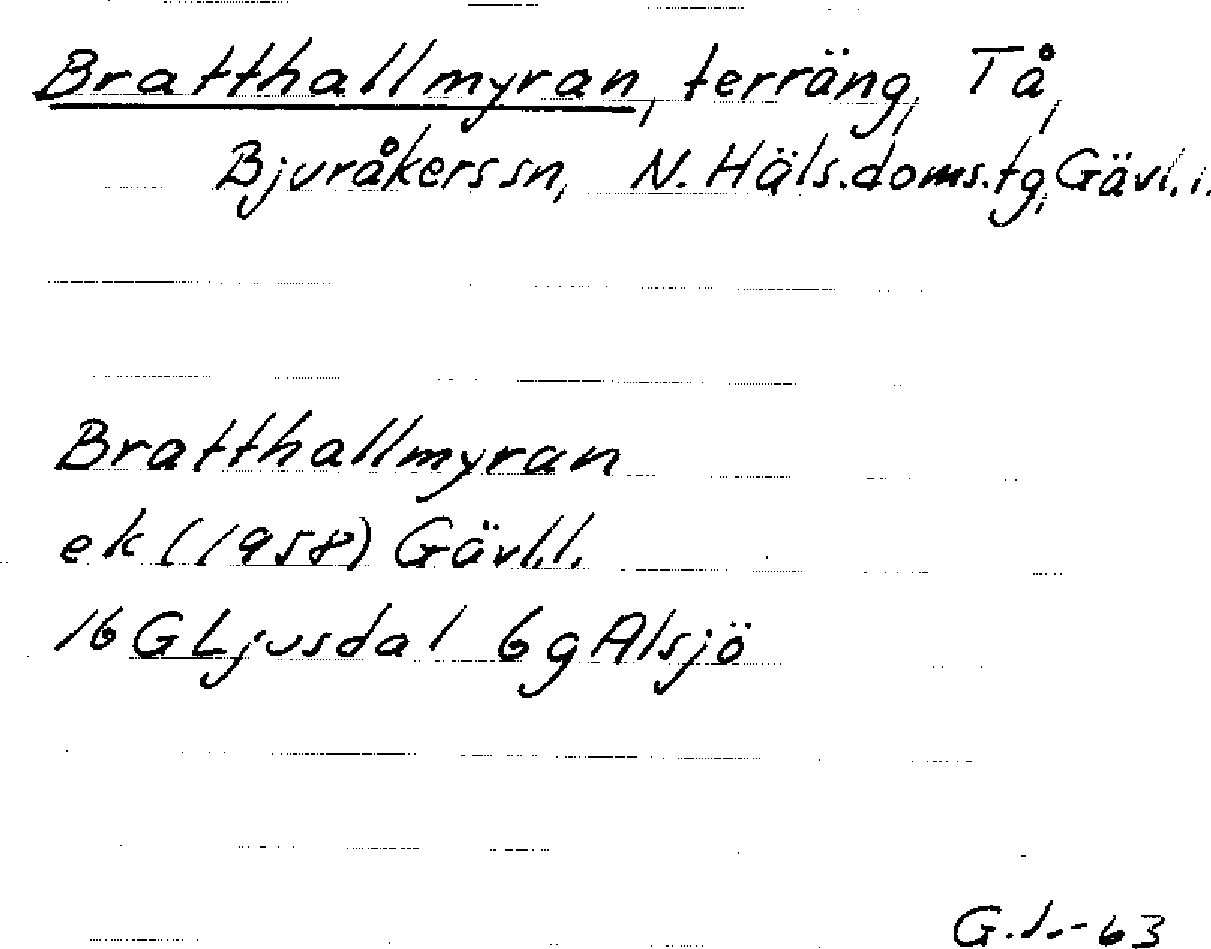 Bratthallmyran, terräng, Tå,
Bjuråkers sn, N. Häls. doms.tg, Gävl. l.
Bratthallmyran
ek (1958) Gävl.l.
16 G Ljusdal 6 g Alsjö
G.l.-63